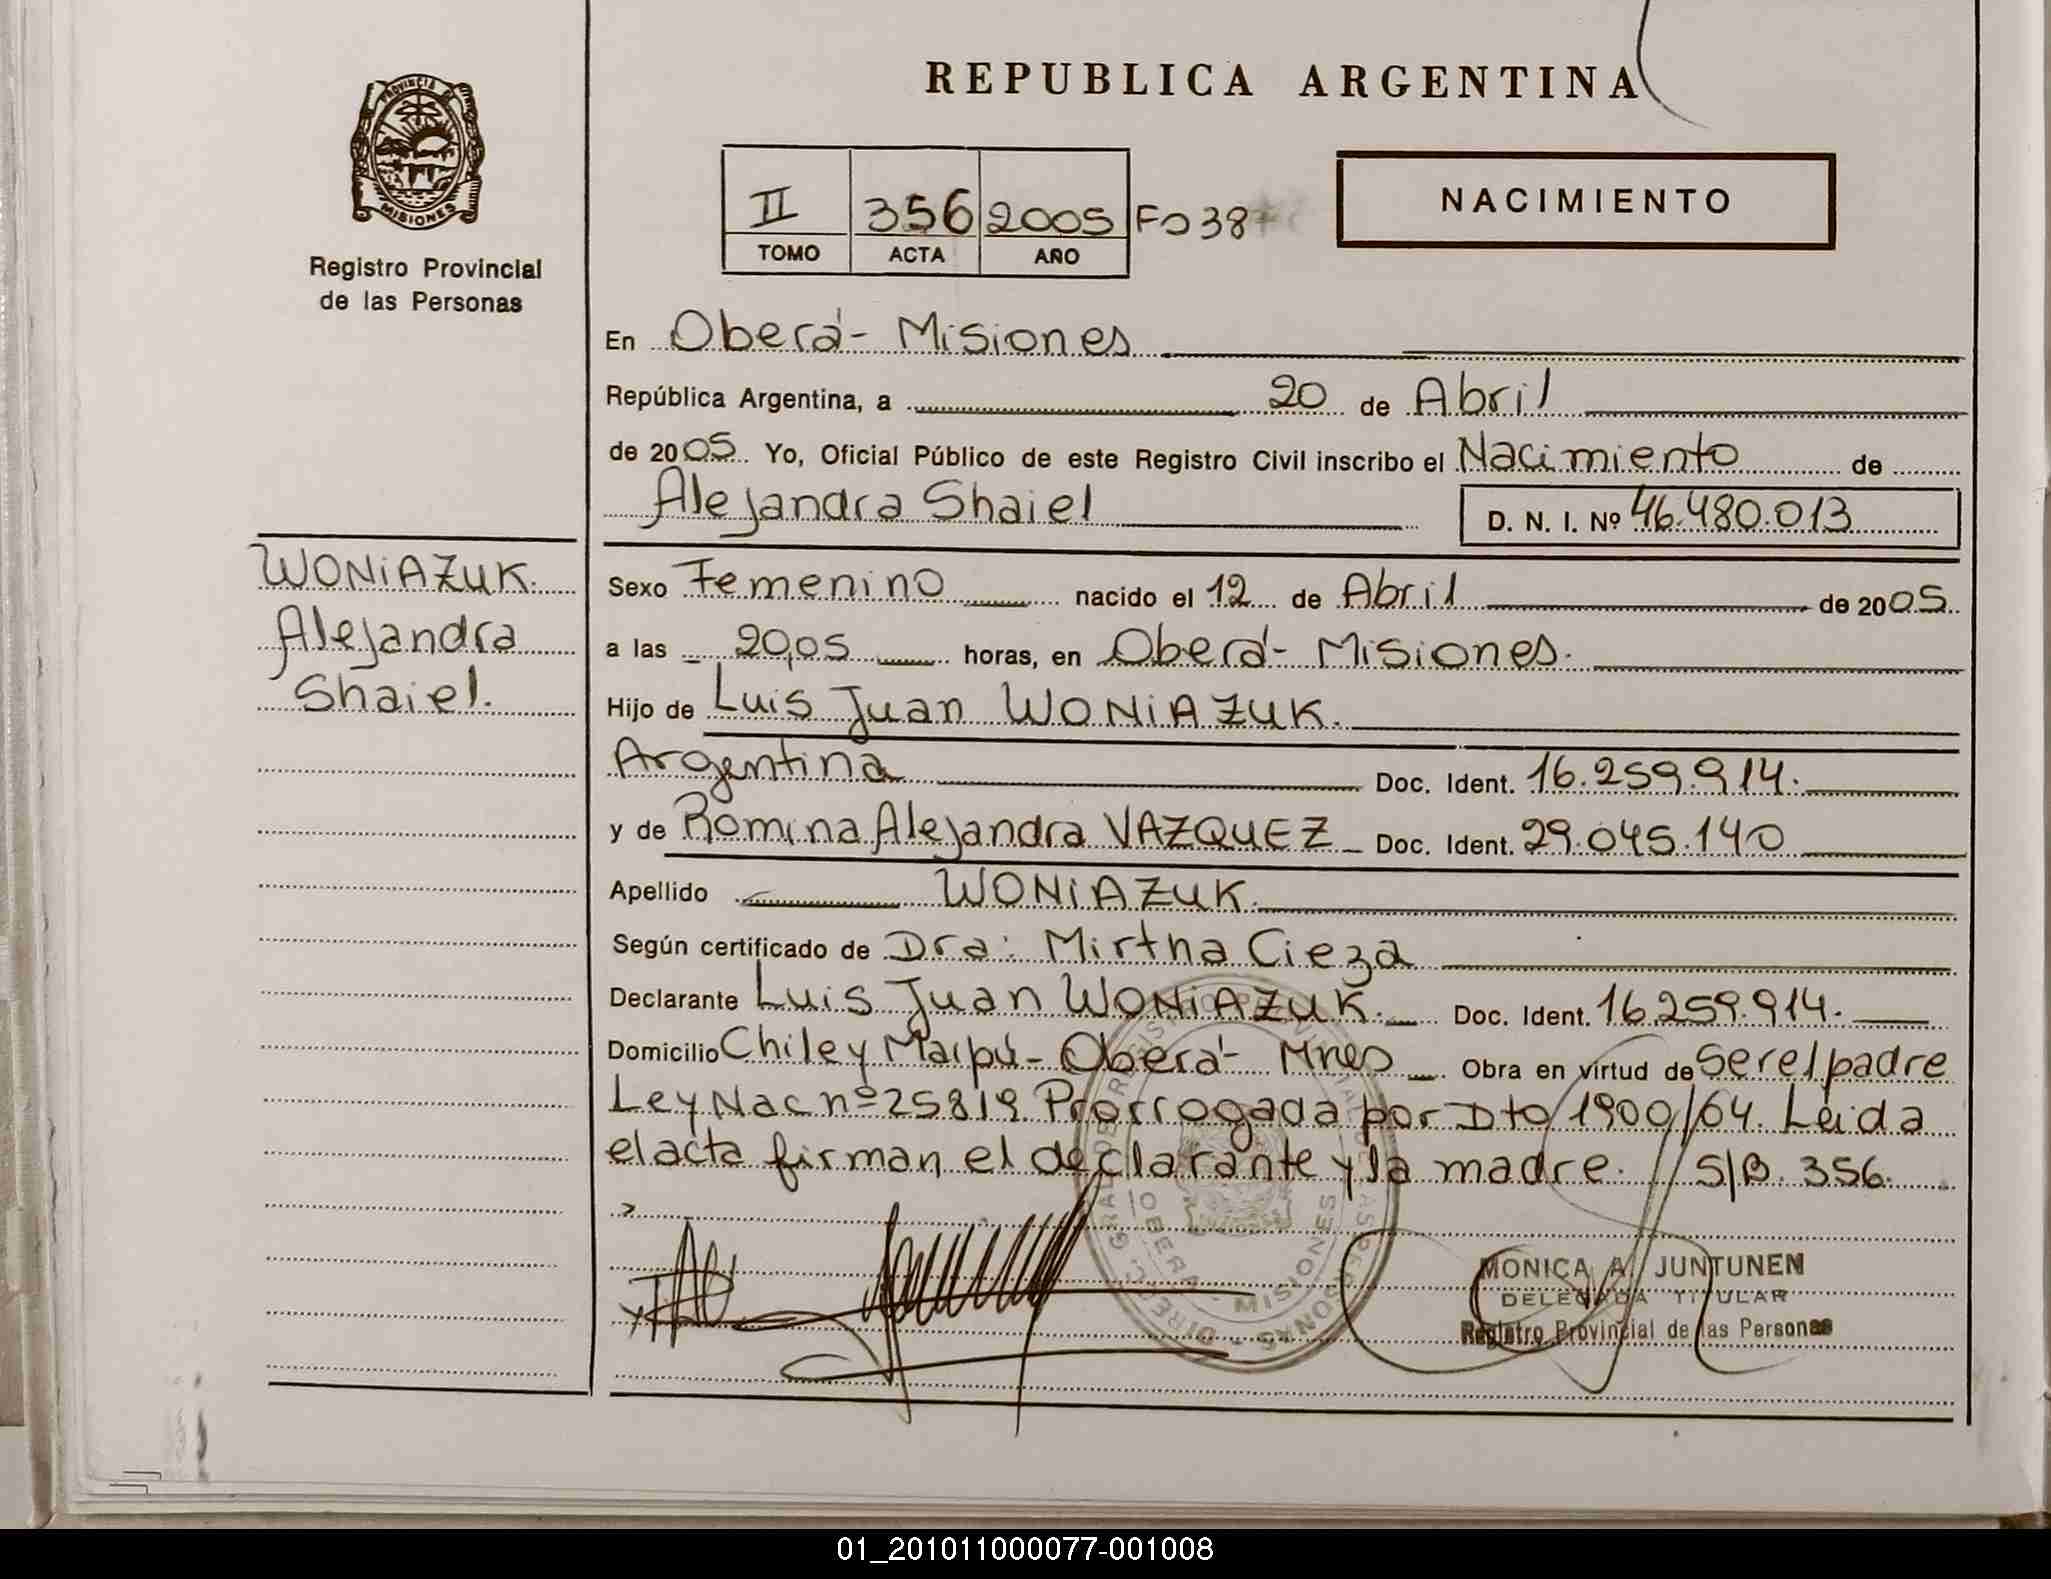 REPUBLICA ARGENTINA
PROVINCIA DE
MISIONES
Registro Provincial
de las Personas
II 356 2005 Fo 38
TOMO ACTA AÑO
NACIMIENTO
En Oberá - Misiones
República Argentina, a 20 de Abril
de 2005 Yo, Oficial Público de este Registro Civil inscribo el Nacimiento de
Alejandra Shaiel D. N. I. Nº 46.480.013
WONiAZUK.
Alejandra
Shaiel.
Sexo Femenino nacido el 12 de Abril de 2005
a las 20,05 horas, en Oberá - Misiones.
Hijo de Luis Juan WONiAZUK.
Argentina Doc. Ident. 16.259.914.
y de Romina Alejandra VAZQUEZ Doc. Ident. 29.045.140
Apellido WONiAZUK.
Según certificado de Dra: Mirtha Cieza
Declarante Luis Juan WONiAZUK. Doc. Ident. 16.259.914.
Domicilio Chile y Maipú - Oberá - Mnes Obra en virtud de Ser el padre
Ley Nac nº 25819 Prorrogada por Dto 1900/04. Leida
el acta firman el declarante y la madre. // S/B. 356.
OBERA - MISIONES
MONICA A. JUNTUNEN
DELEGADA TITULAR
Registro Provincial de las Personas
01_201011000077-001008